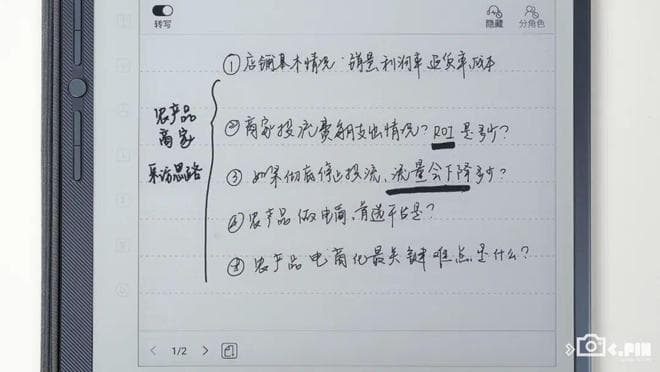 转写
隐藏
分角色
①店铺基本情况:销量利润率退货率成本
农产品
商家
采访思路
②商家投流费钢支出情况?ROI是多少?
③如果彻底停止投流,流量会下降多少?
④农产品做电商,首选平台是?
⑤农产品电商化最关键难点是什么?
1/2
C.PIN